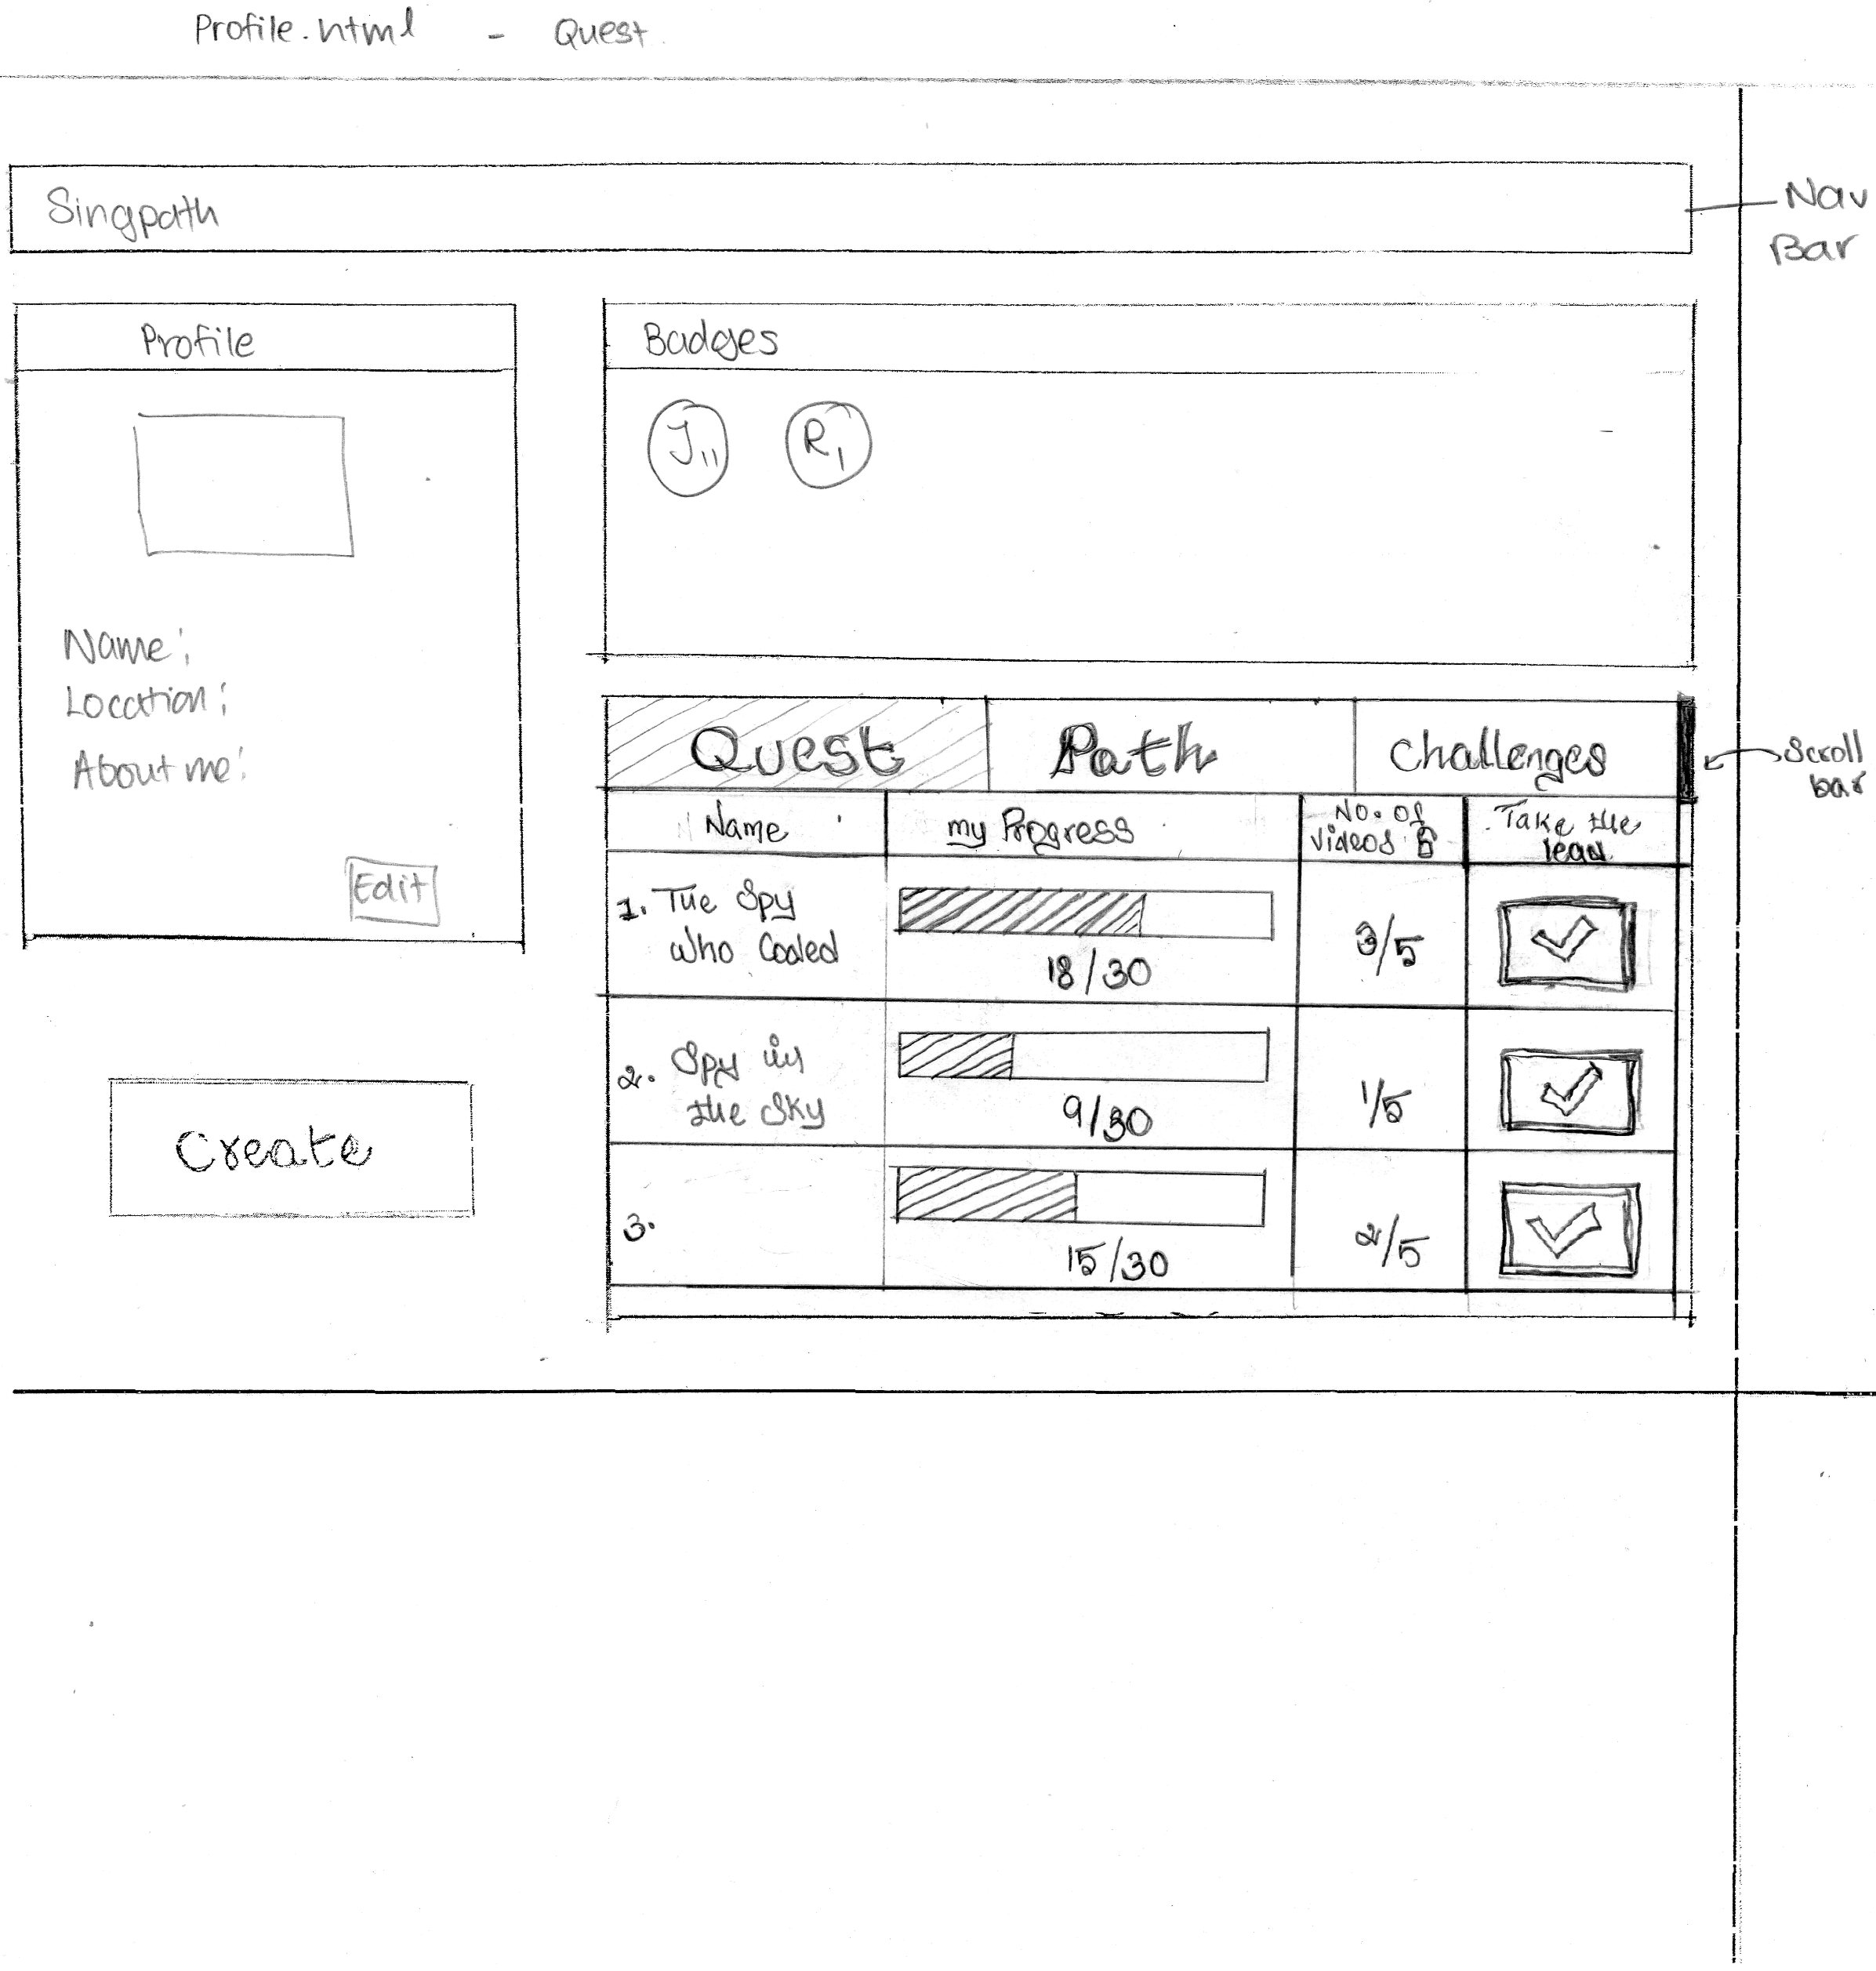 Profile.html - Quest
Singpath
Nav
Bar
Profile
Badges
J11
R1
Name:
Location:
About me:
Edit
Create
Scroll
bar
Quest Path Challenges
Name my Progress No. of Videos Take the lead
1. The Spy
who Coded
18/30
3/5
2. Spy in
the Sky
9/30
1/5
3.
15/30
2/5